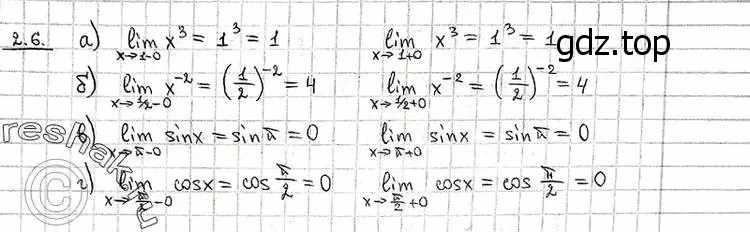 2.6. а) lim x→1-0 x³ = 1³ = 1 lim x→1+0 x³ = 1³ = 1
gdz.top
б) lim x→1/2-0 x⁻² = (1/2)⁻² = 4 lim x→1/2+0 x⁻² = (1/2)⁻² = 4
в) lim x→π-0 sin x = sin π = 0 lim x→π+0 sin x = sin π = 0
г) lim x→π/2-0 cos x = cos π/2 = 0 lim x→π/2+0 cos x = cos π/2 = 0